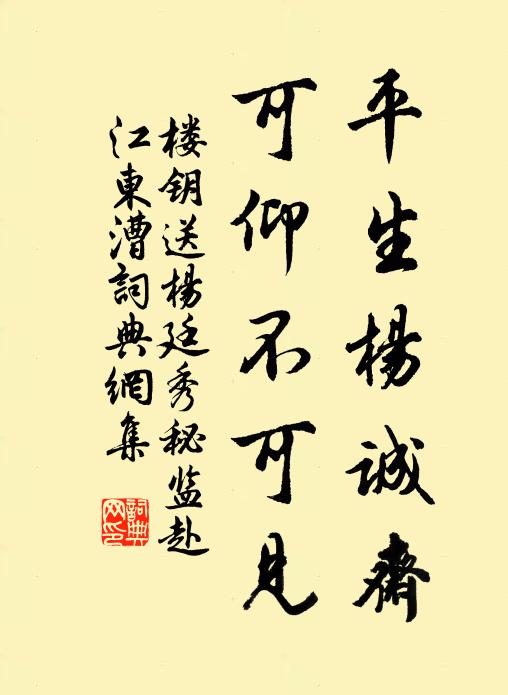 平生楊诚齋
可仰不可見
楼钥送楊廷秀秘监赴
江東漕詞典網集
詞典
网印